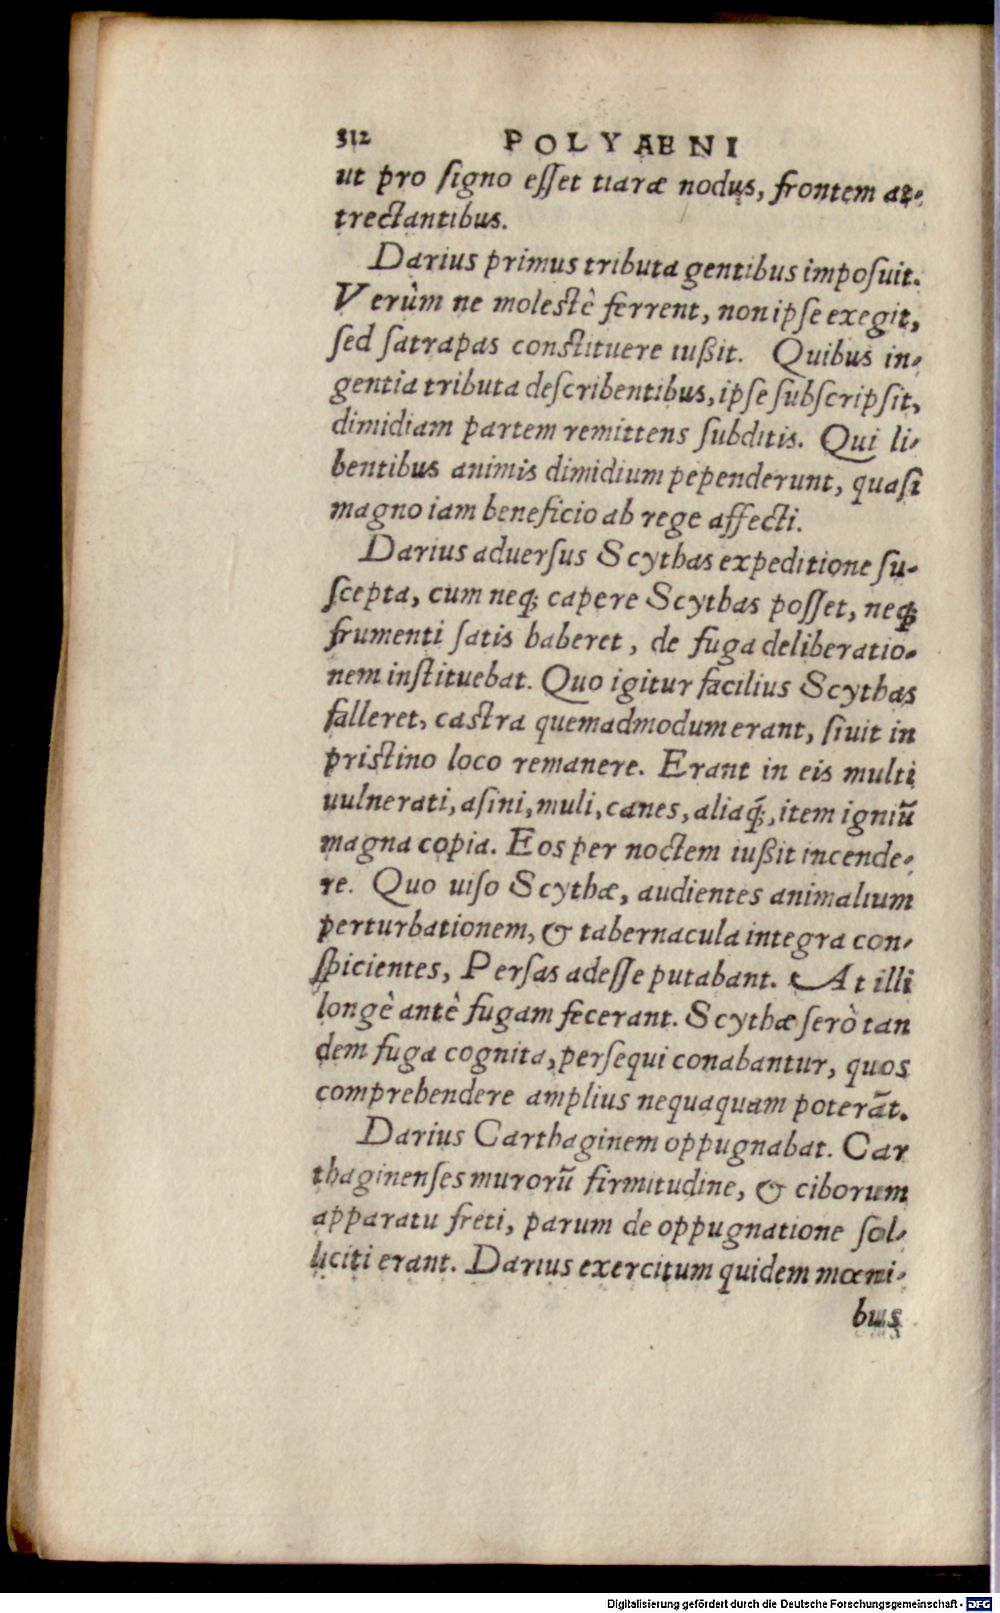 312 POLYAENI
ut pro ſigno eſſet tiaræ nodus, frontem at-
trectantibus.
Darius primus tributa gentibus impoſuit.
Verùm ne moleſtè ferrent, non ipſe exegit,
ſed ſatrapas conſtituere iußit. Quibus in-
gentia tributa deſcribentibus, ipſe ſubſcripſit,
dimidiam partem remittens ſubditis. Qui li-
bentibus animis dimidium pependerunt, quaſi
magno iam beneficio ab rege affecti.
Darius aduerſus Scythas expeditione ſu-
ſcepta, cum neq; capere Scythas poſſet, neq;
frumenti ſatis haberet, de fuga deliberatio-
nem inſtituebat. Quo igitur facilius Scythas
falleret, caſtra quemadmodum erant, ſiuit in
priſtino loco remanere. Erant in eis multi
uulnerati, aſini, muli, canes, aliaq́;, item igniū
magna copia. Eos per noctem iußit incende-
re. Quo uiſo Scythæ, audientes animalium
perturbationem, & tabernacula integra con-
ſpicientes, Perſas adeſſe putabant. At illi
longè antè fugam fecerant. Scythæ ſerò tan
dem fuga cognita, perſequi conabantur, quos
comprehendere amplius nequaquam poterāt.
Darius Carthaginem oppugnabat. Car
thaginenſes murorū firmitudine, & ciborum
apparatu freti, parum de oppugnatione ſol-
liciti erant. Darius exercitum quidem mœni-
bus
Digitalisierung gefördert durch die Deutsche Forschungsgemeinschaft - DFG